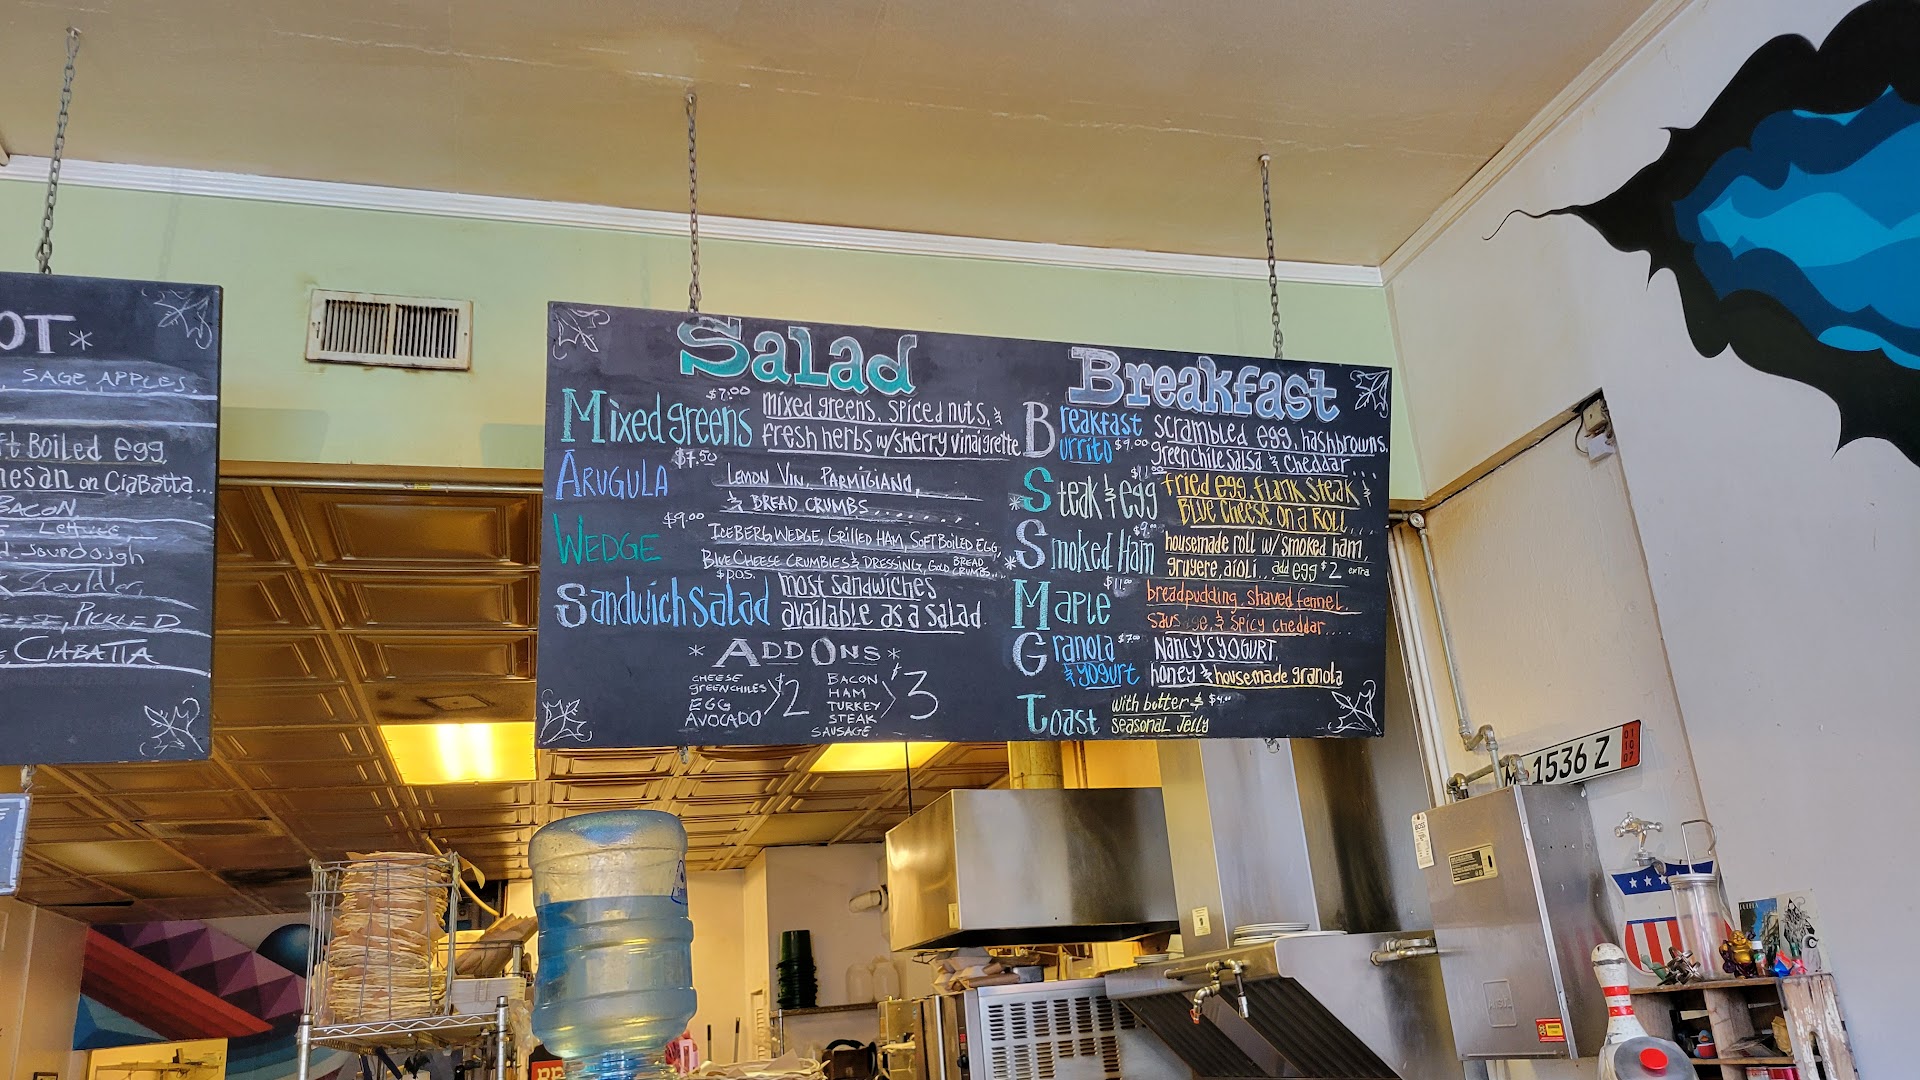 OT*
, SAGE, APPLES,
ft BOILED EGG,
mesan on CIABATTA...
BACON
LETTUCE,
SOURDOUGH
SHOULDER,
CHEESE, PICKLED
, CIABATTA
Salad
Mixed greens $7.00 mixed greens, spiced nuts, &
fresh herbs w/sherry vinaigrette
ARUGULA $7.50 LEMON VIN, PARMIGIANO,
& BREAD CRUMBS........
WEDGE $9.00 ICEBERG WEDGE, GRILLED HAM, SOFT BOILED EGG,
BLUE CHEESE CRUMBLES & DRESSING, GOLD BREAD CRUMBS...
Sandwich Salad $DOS. most sandwiches
available as a salad.
* ADD ONS *
CHEESE
GREEN CHILES
EGG
AVOCADO
$2
BACON
HAM
TURKEY
STEAK
SAUSAGE
$3
Breakfast
Breakfast Burrito $9.00 scrambled egg, hashbrowns,
green chile salsa & cheddar...
*Steak & egg $11.00 fried egg, flank steak &
Blue cheese on a Roll...
*Smoked Ham $9.00 housemade roll w/ smoked ham,
gruyere, aioli... add egg $2 extra
Maple $11.00 breadpudding, shaved fennel,
sausage, & spicy cheddar....
Granola & yogurt $7.00 NANCY'S YOGURT,
honey & housemade granola
Toast with butter & $4.00
seasonal jelly
1536 Z
01
10
07